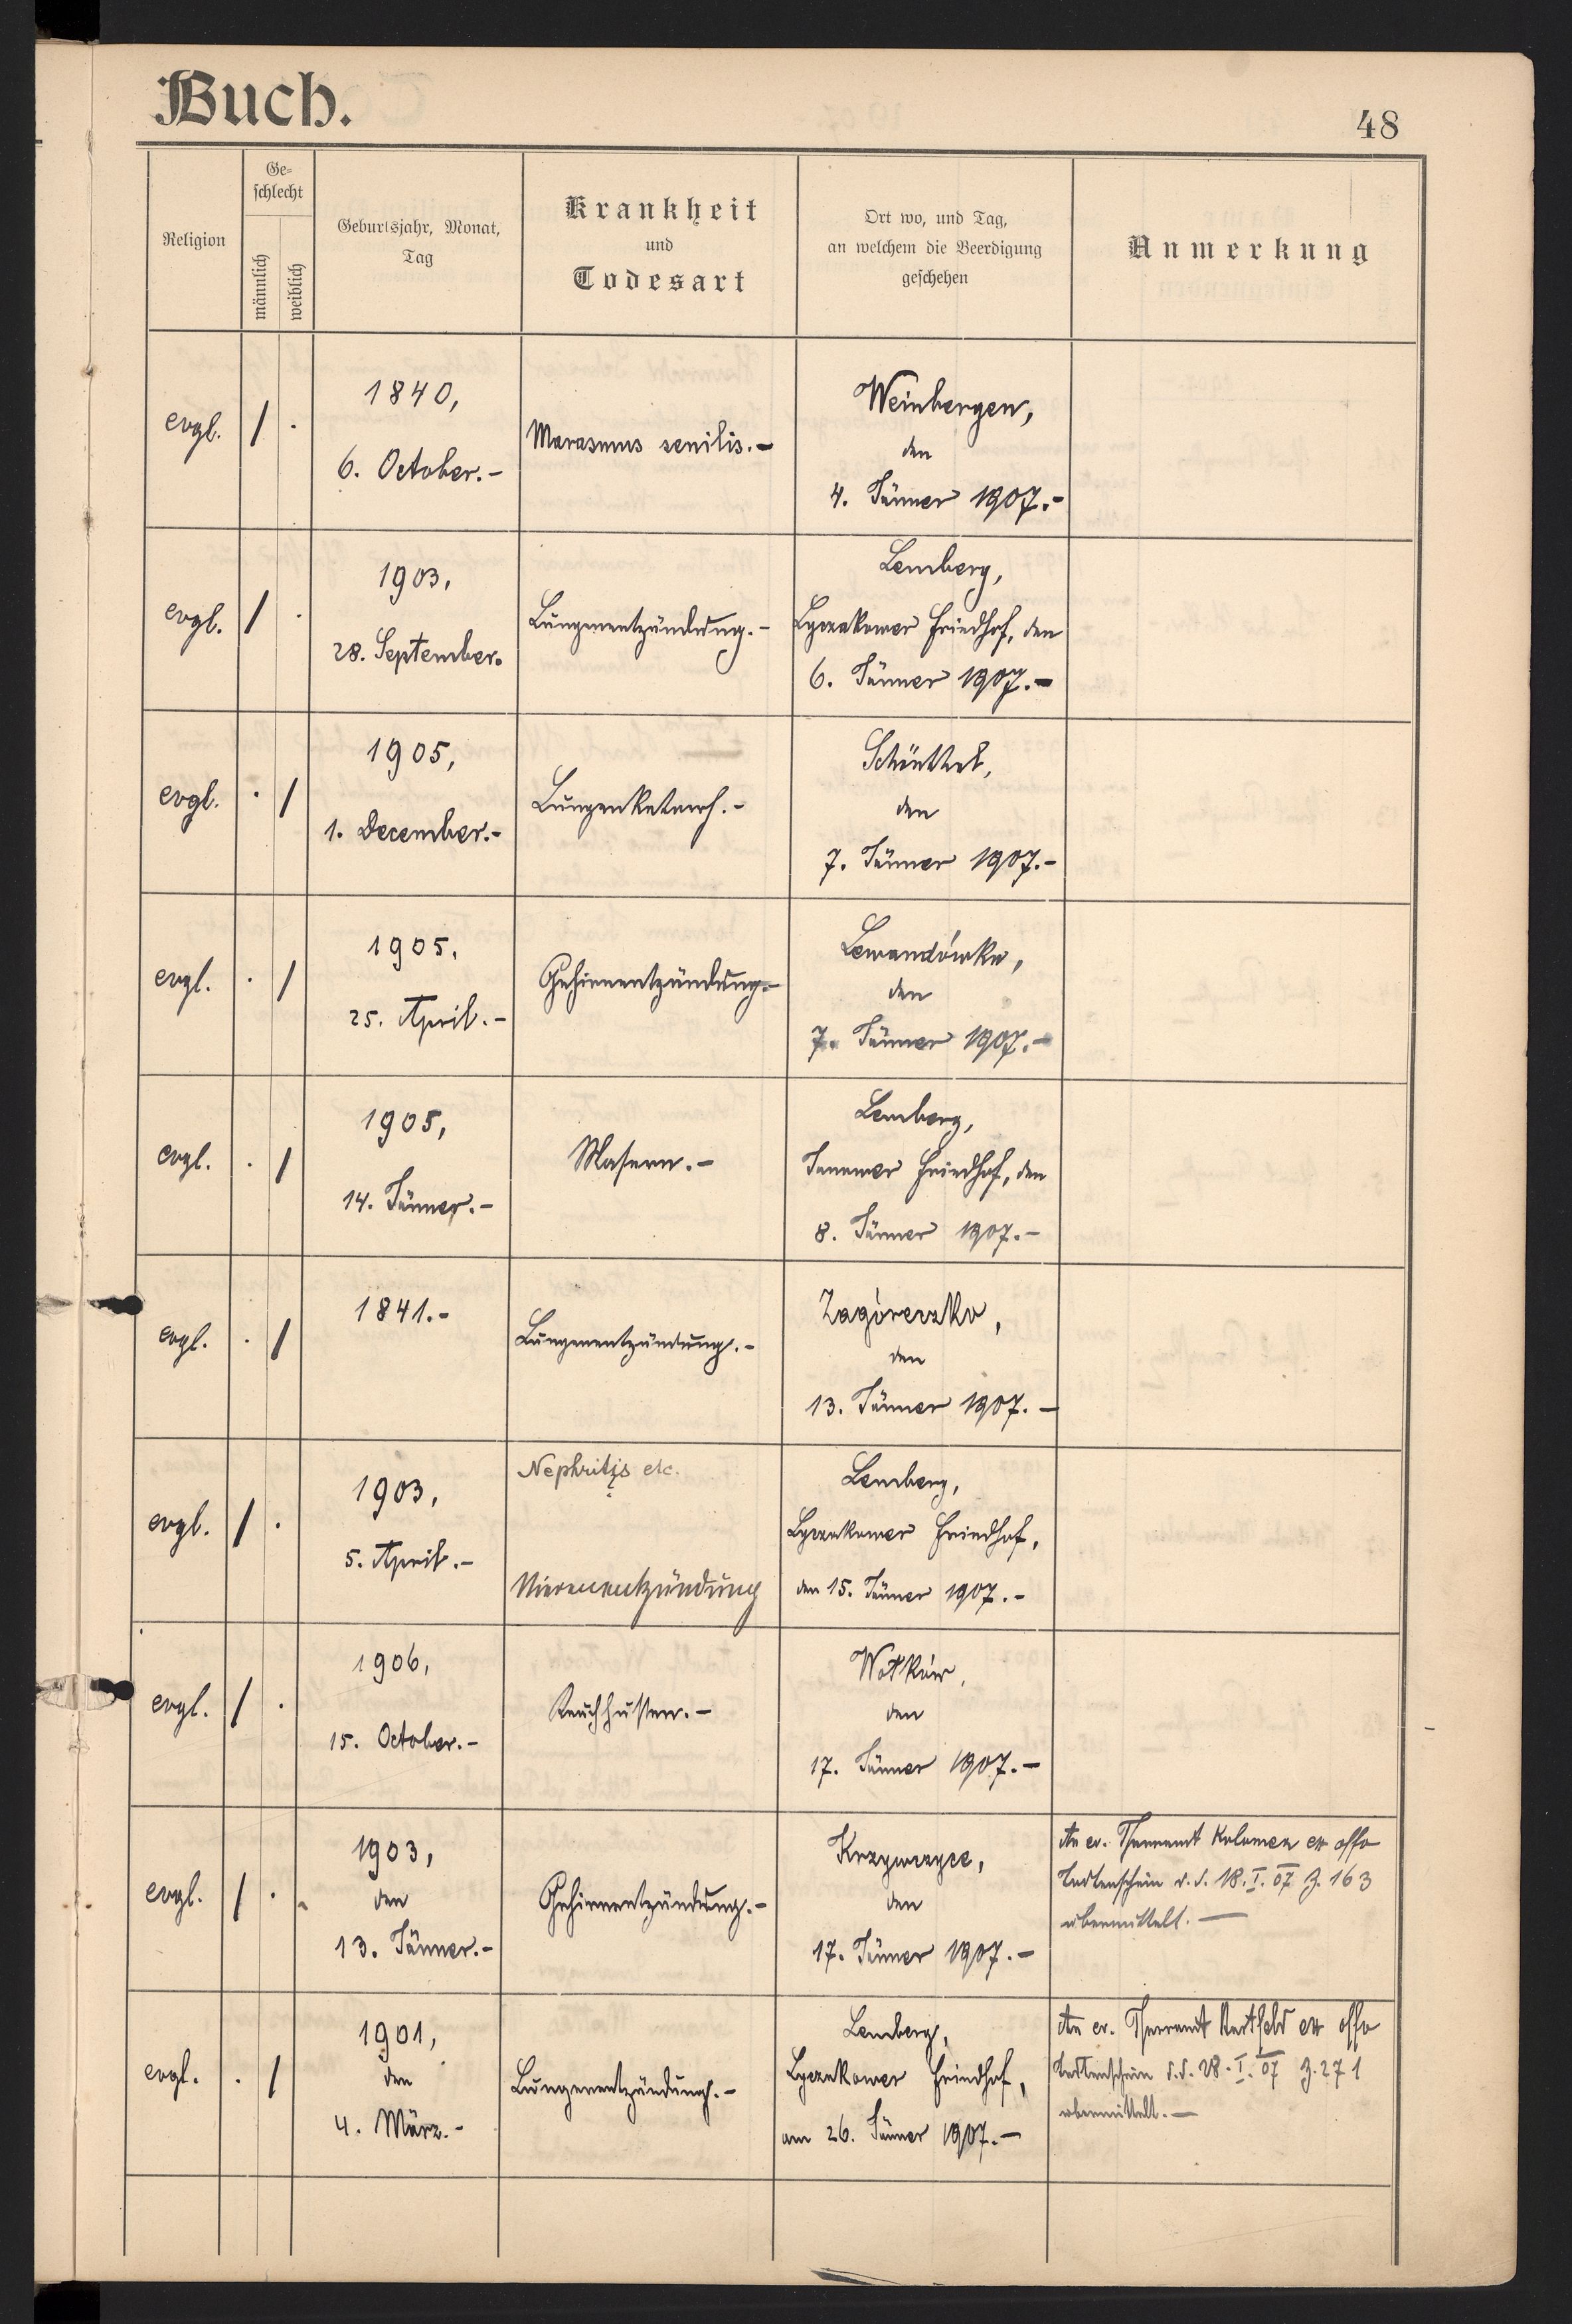 Buch.
48
Religion
Ge-
schlecht
männlich
weiblich
Geburtsjahr, Monat,
Tag
Krankheit
und
Todesart
Ort wo, und Tag,
an welchem die Beerdigung
geschehen
Anmerkung
evgl. / .
1840,
6. October.-
Marasmus senilis.-
Weinbergen,
den
4. Jänner 1907.-
evgl. / .
1903,
28. September.
Lungenentzündung.-
Lemberg,
Lyczakower Friedhof, den
6. Jänner 1907.-
evgl. . /
1905,
1. December.-
Lungenkatarrh.-
Schönthal,
den
7. Jänner 1907.-
evgl. . /
1905,
25. April.-
Gehirnentzündung.-
Lewandówka,
den
7. Jänner 1907.-
evgl. . /
1905,
14. Jänner.-
Masern.-
Lemberg,
Janower Friedhof, den
8. Jänner 1907.-
evgl. . /
1841.-
Lungenentzündung.-
Zagóreczko,
den
13. Jänner 1907.-
evgl. / .
1903,
5. April.-
Nephritis etc.
Nierenentzündung
Lemberg,
Lyczakower Friedhof,
den 15. Jänner 1907.-
evgl. / .
1906,
15. October.-
Keuchhusten.-
Wołków,
den
17. Jänner 1907.-
evgl. / .
1903,
den
13. Jänner.-
Gehirnentzündung.-
Krzywczyce,
den
17. Jänner 1907.-
An ev. Pfarramt Kolomea ex offo
Todtenschein d.d. 18. I. 07 Z. 163
übermittelt.-
evgl. . /
1901,
den
4. März.-
Lungenentzündung.-
Lemberg,
Lyczakower Friedhof,
am 26. Jänner 1907.-
An ev. Pfarramt Hartfeld ex offo
Todtenschein d.d. 28. I. 07 Z. 271
übermittelt.-